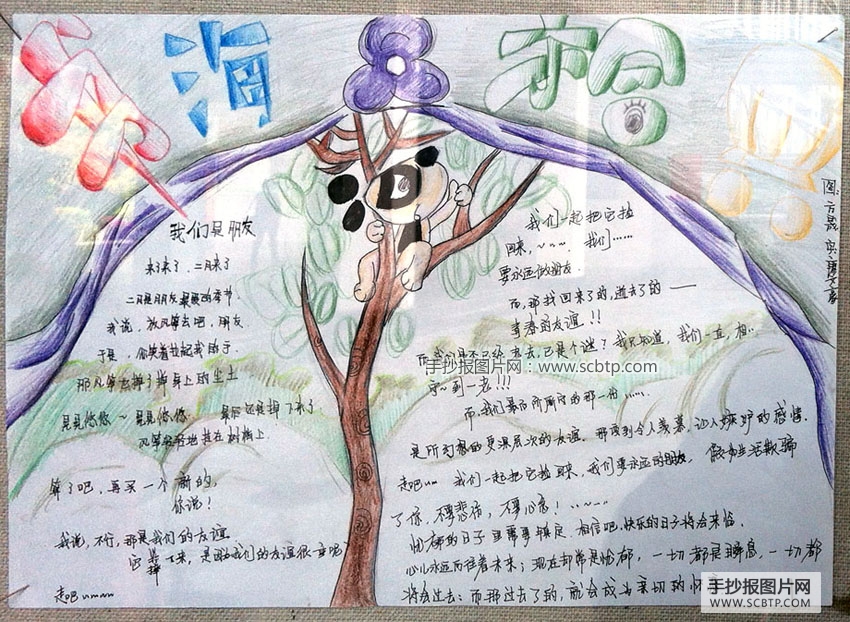 海
图:方晟
我们是朋友
来了来了,二月来了
二月是朋友聚集的季节
我说,放风筝去吧,朋友
于是,你笑着拉起我的手
那风筝
晃晃悠悠~晃晃悠悠 最后还是掉下来了
风筝轻轻地挂在树梢上
算了吧,再买一个新的,
你说!
我说,不行,那是我们的友谊
它掉下来,是因为我们的友谊很重呢
走吧uman
我们一起把它捡
回来,~~~,我们……
要永远做朋友.
而,那找回来了的,逝去了的——
青春的友谊!!
是个谜?我只知道,我们一直,相..
守~到一老!!!
手抄报图片网:www.scbtp.com
而,我们最后所
是所幻想的更深层次的友谊.那深到令人羡慕,让人嫉妒的感情.
走吧um 我们一起把它捡回来,我们要永远做朋友,假如生活欺骗
了你,不要悲伤,不要心急!..~...
忧郁的日子里需要镇定.相信吧,快乐的日子将会来临.
心儿永远向往着未来;现在却常是忧郁,一切都是瞬息,一切都
将会过去;而那过去了的,就会成为亲切的怀
手抄报图片网
WWW.SCBTP.COM